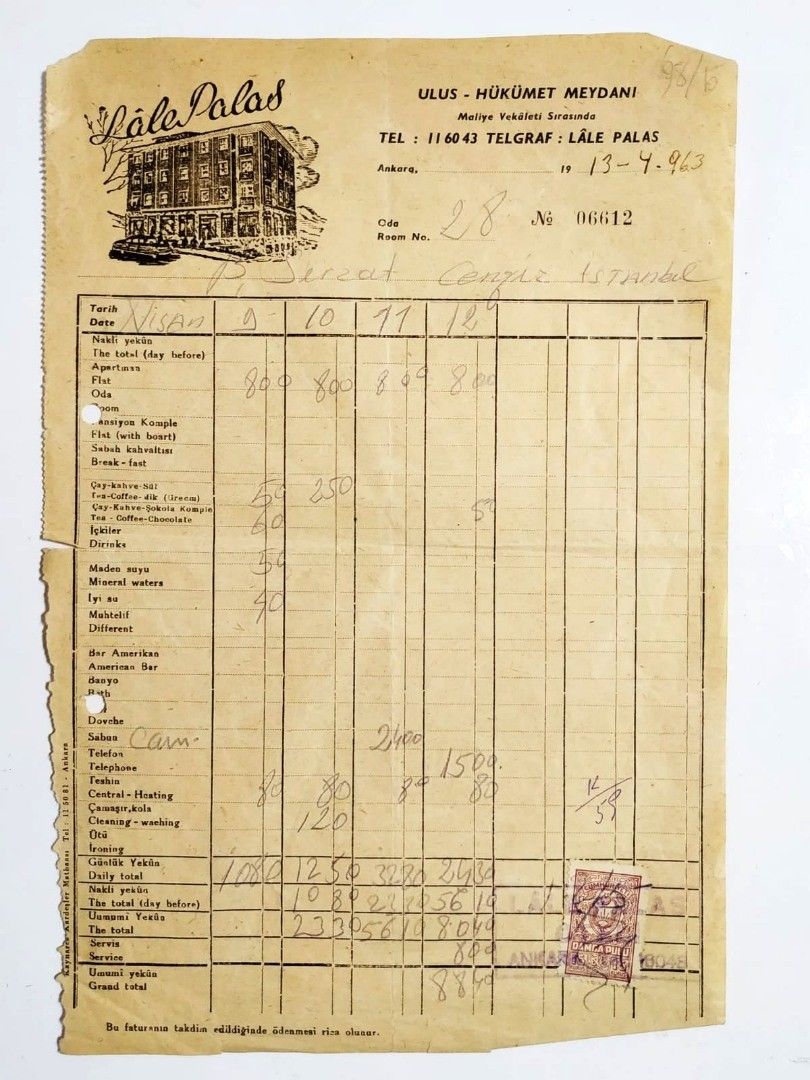 98/15
Lâle Palas
ULUS - HÜKÜMET MEYDANI
Maliye Vekâleti Sırasında
TEL : 11 60 43 TELGRAF : LÂLE PALAS
Ankara, 19 13-4-963
Oda
Room No. 28 № 06612
Cengiz İSTANBUL
Tarih
Date NİSAN 9 10 11 12
Nakli yekûn
The total (day before)
Apartman
Flat 800 800 800 800
Oda
oom
ansiyon Komple
Flat (with boart)
Sabah kahvaltısı
Break - fast
Çay-kahve-Süt
Tea-Coffee-dik (Greem) 50 250
Çay-Kahve-Şokola Komple
Tea - Coffee-Chocolate 60 50
İçkiler
Dirinks
Maden suyu 50
Mineral waters
İyi su 40
Muhtelif
Different
Bar Amerikan
American Bar
Banyo
Bath
Dovche
Sabun Cam. 2400
Telefon
Telephone 1500.
Teshin
Central - Heating 80 80 80 80
Çamaşır, kola
Cleaning - waching 120
Ütü
İroning
Günlük Yekûn
Daily total 1080 1250 3280 2430
Nakli yekûn
The total (day before) 1080 2330 5610
Uumumî Yekûn
The total 2330 5610 8040
Servis
Service 800
Umumî yekûn
Grand total 8840
DAMGA PULU
LÂLE PALAS
ANKARA
Bu faturanın takdim edildiğinde ödenmesi rica olunur.
Kaynarca Kardeşler Matbaası Tel : 11 50 81 - Ankara